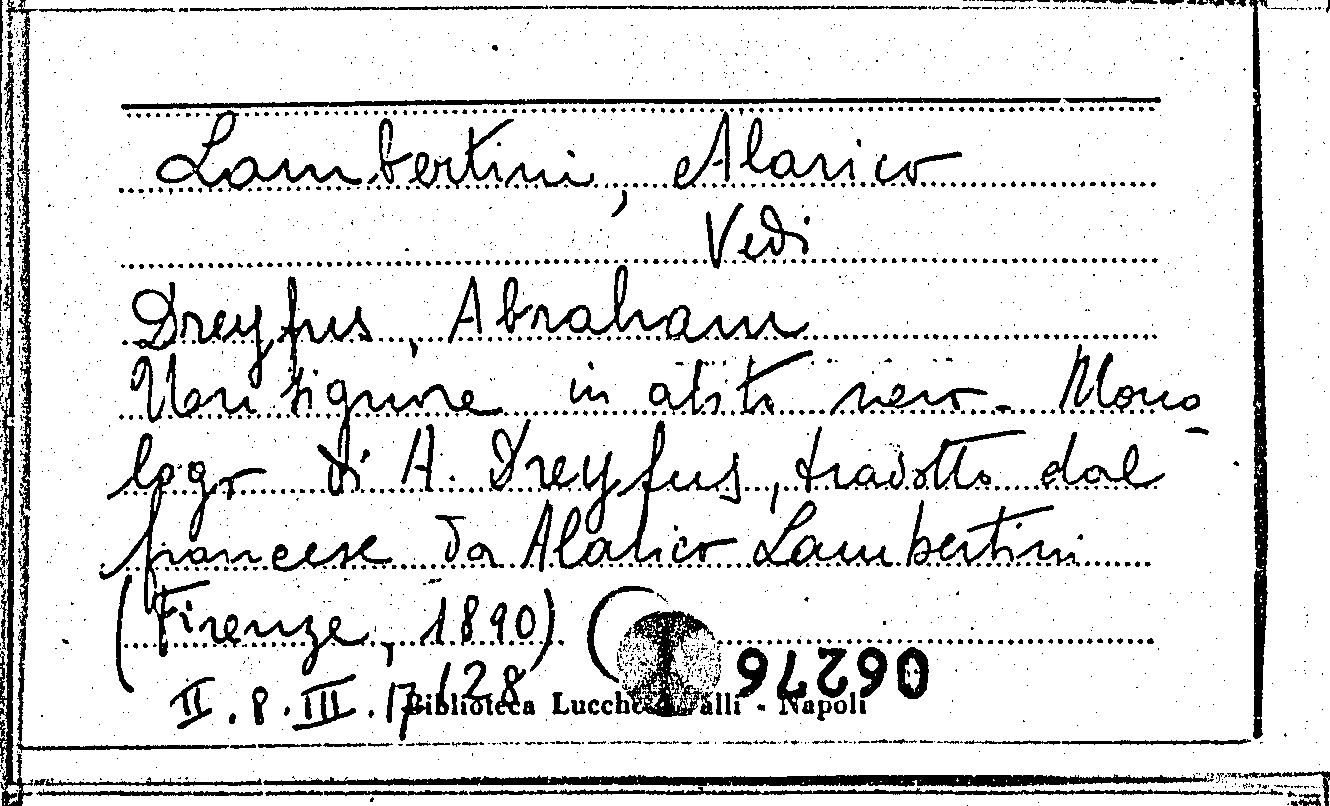 Lambertini, Alarico
Vedi
Dreyfus, Abraham
Un signore in abito nero. Mono-
logo di A. Dreyfus, tradotto dal
francese da Alarico Lambertini
(Firenze, 1890) (
II. 8. III. 17/28
Biblioteca Lucchesi Palli - Napoli
06276